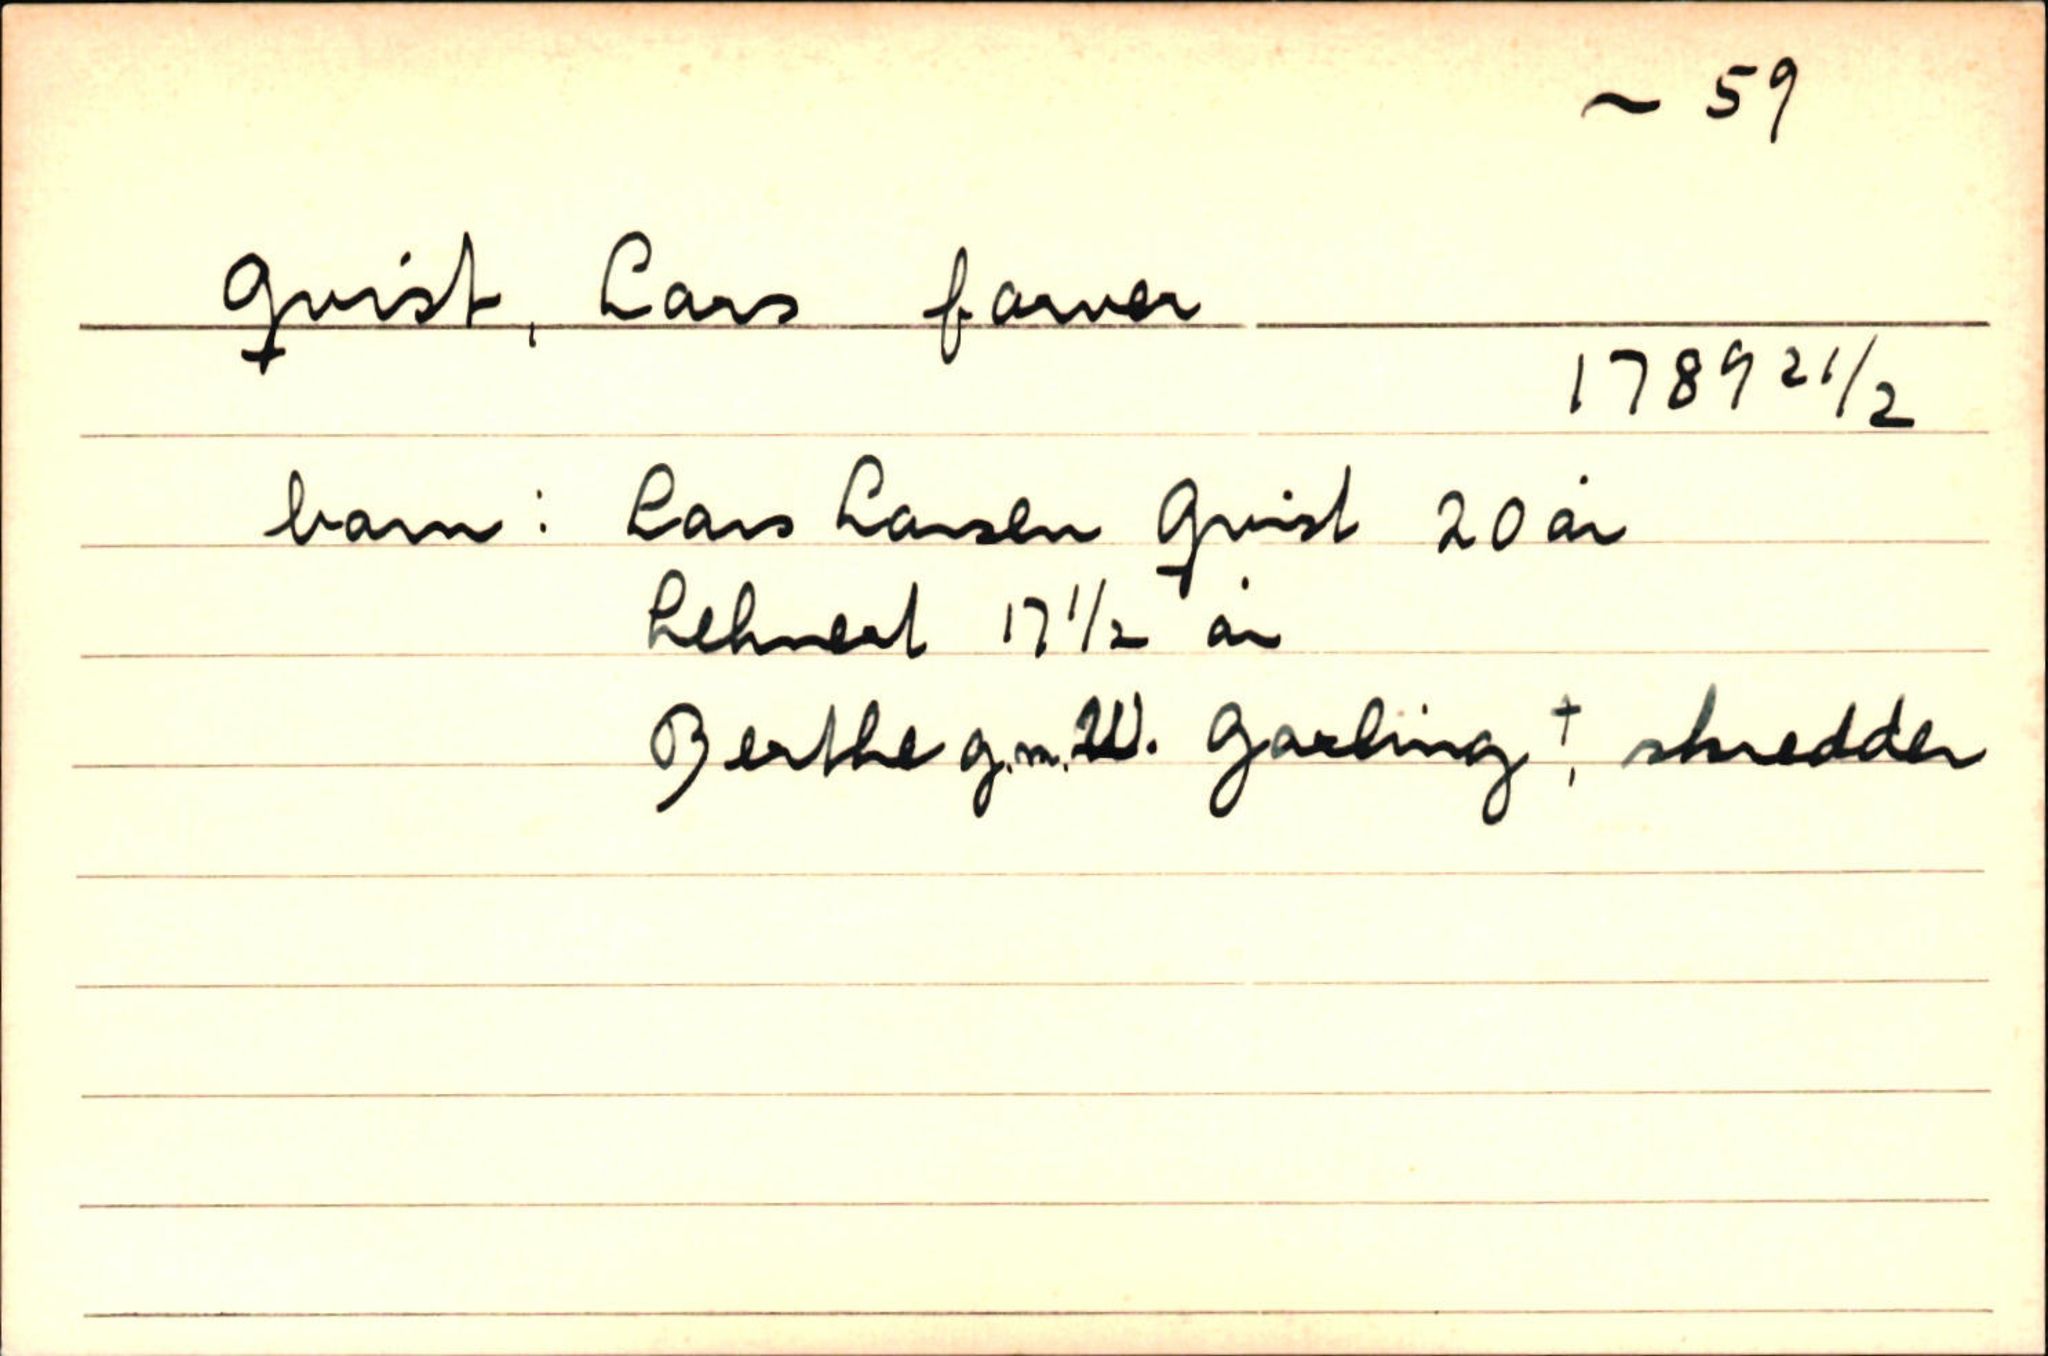 ~ 59
Qvist, Lars farver
1789 21/2
barn: Lars Larsen Qvist 20 år
Lehnert 17 1/2 år
Berthe g.m. W. Garling †, skredder